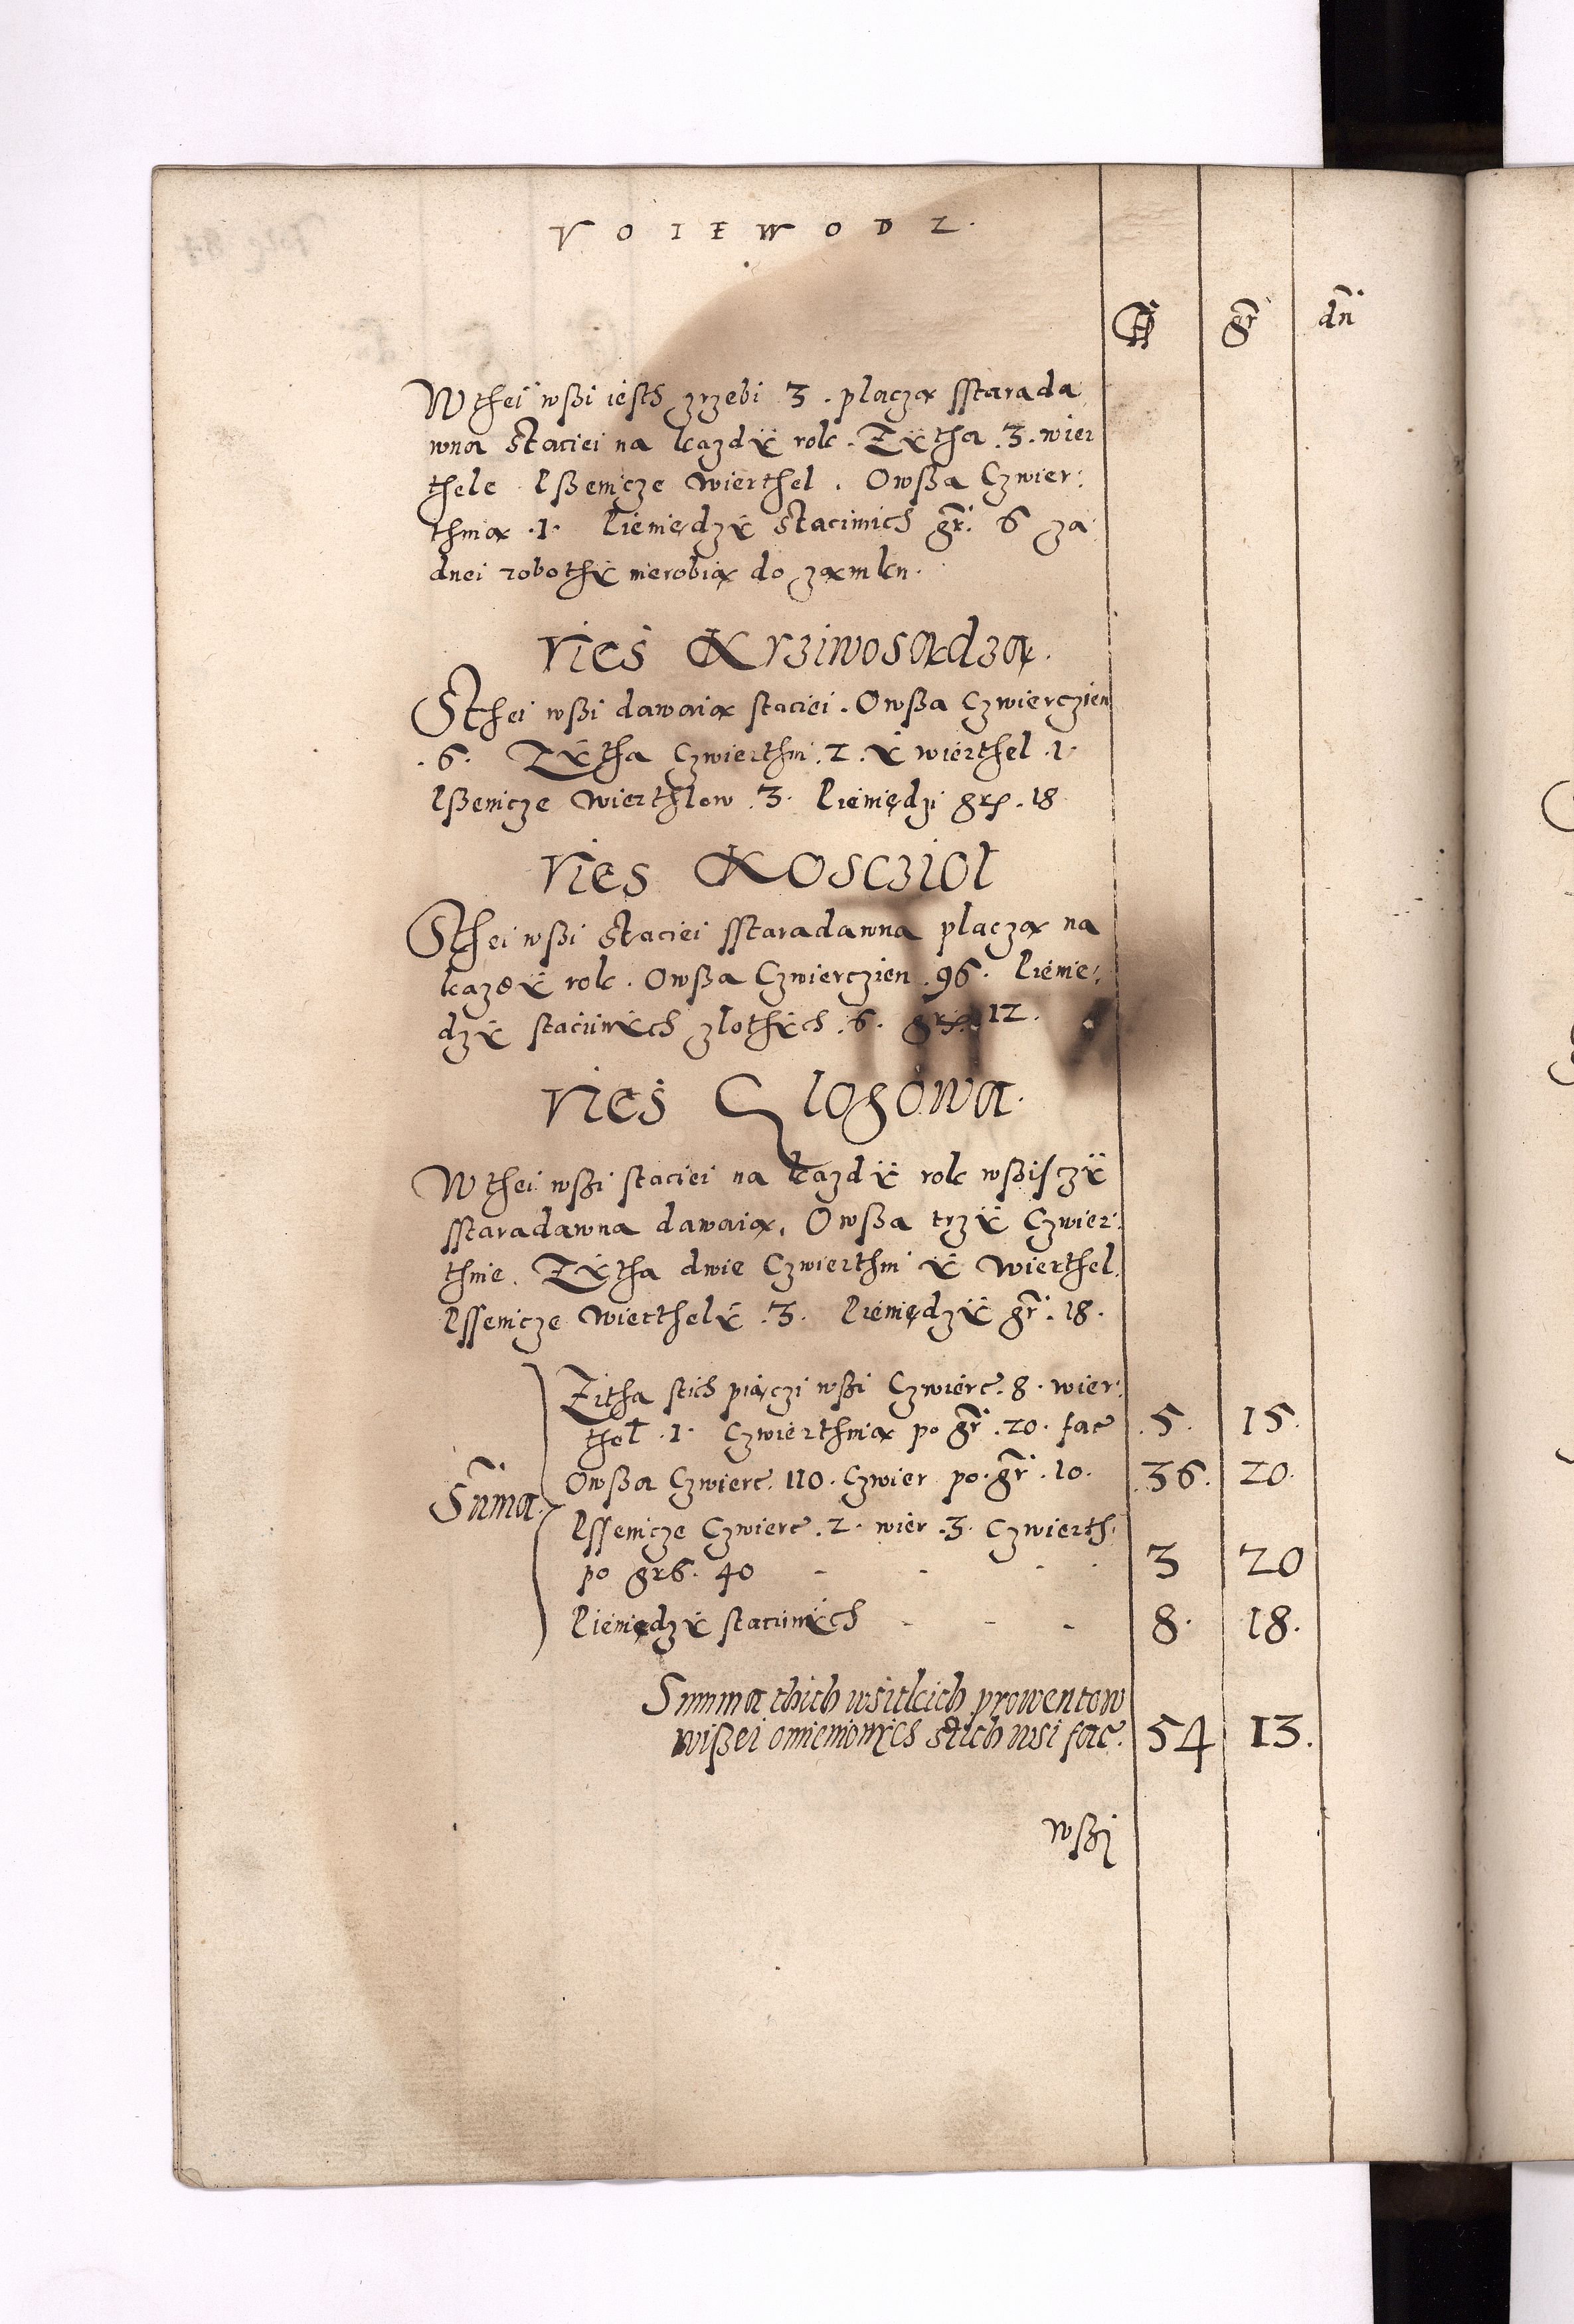 VOIEWODZ.
fl gr dn
W thei wßi iesth zrzebi 3. placzą sstarada
wna staciei na kazdÿ rok. Zÿtha .3. wier
thele Pßenicze wierthel. Owßa Czwier:
thnią .1. Pieniędzÿ stacinich gr. 6 za
dnei robothÿ nierobią do zamku.
Vies Krziwosądza.
Sthei wßi dawaią staciei. Owßa Czwierczien
.6. Zÿtha Czwierthni .2. ÿ wierthel .1.
Pßenicze wierthlow .3. Pieniędzi grs. 18
Vies Kosczioł
Sthei wßi staciei sstaradawna placzą na
kazdÿ rok. Owßa Czwierczien .96. Pienie:
dzÿ staciinÿch zlothÿch .6. grs. 12.
Vies Glogowa.
W thei wßi staciei na kazdÿ rok wßisczÿ
sstaradawna dawaią, Owßa trzÿ Czwier:
thnie. Zÿtha dwie Czwierthni ÿ wierthel.
Pssenicze wierthelÿ .3. Pieniędzÿ gr. 18.
Zitha stich piączi wßi Czwierc. 8. wier:
thel .1. Czwierthnią po gr .20. fac .5. 15.
Owßa Czwierc. 110. Czwier po gr .10. 36. 20.
Suma
Pssenicze Czwierc .2. wier .3. Czwierth.
po grs. 40 - - - - 3 20
Pieniędzÿ staciinÿch - - - 8. 18.
Summa thich wsitkich prowentow
wißei omienionÿch stich wsi fac. 54 13.
wßi